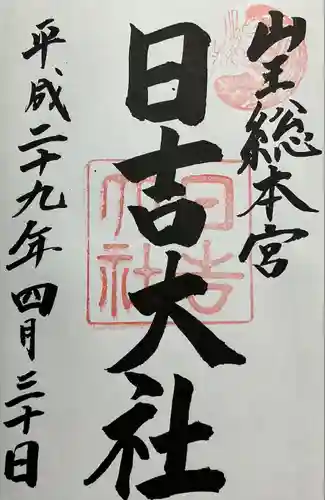 山王総本宮
日吉大社
平成二十九年四月三十日
日吉大社